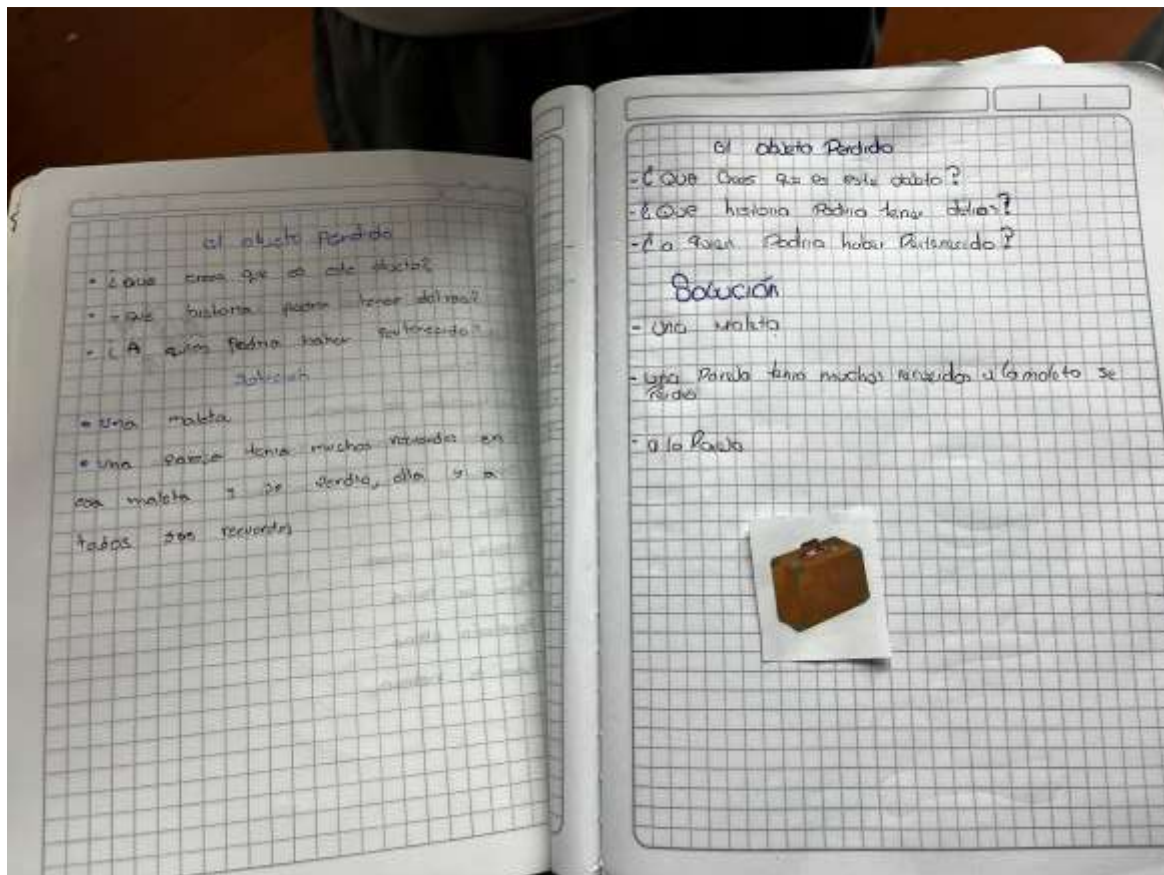 el objeto Perdido
• ¿Que crees que es este objeto?
• ¿Que historia podria tener detras?
• ¿A quien Podria haber Pertenecido?
Solucion
• Una maleta
• Una pareja tenia muchos recuerdos en
esa maleta y se perdio, ella y a
todos sus recuerdos
el objeto Perdido
- ¿QUE Crees que es este objeto?
- ¿Que historia Podria tener detras?
- ¿a quien Podria haber Pertenecido?
Solución
- Una maleta
- Una Pareja tenia muchos recuerdos y la maleta se
Perdio
- a la Pareja